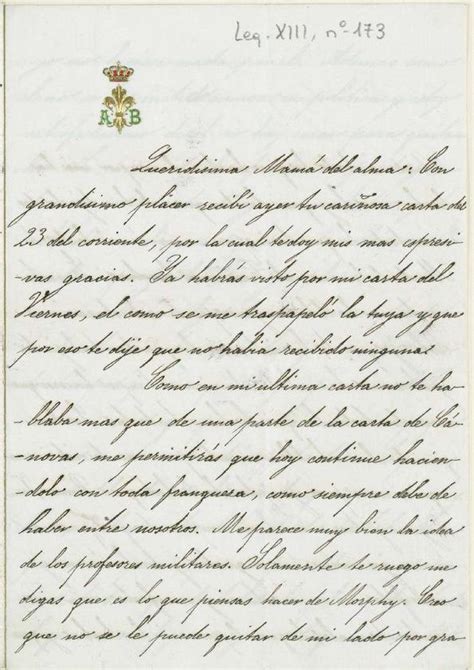 Leg. XIII, nº 173
A B
Queridisima Mamá del alma: Con
grandisimo placer recibi ayer tu cariñosa carta del
23 del corriente, por la cual te doy mis mas espresi-
vas gracias. Ya habrás visto por mi carta del
Viernes, el como se me traspapeló la tuya y que
por eso te dije que no habia recibido ninguna.
Como en mi ultima carta no te ha-
-blaba mas que de una parte de la carta de Cá-
-novas, me permitirás que hoy continue hacien-
-dolo con toda franqueza, como siempre debe de
haber entre nosotros. Me parece muy bien la idea
de los profesores militares. Solamente te ruego me
digas que es lo que piensas hacer de Morphy. Creo
que no se le puede quitar de mi lado por gra-